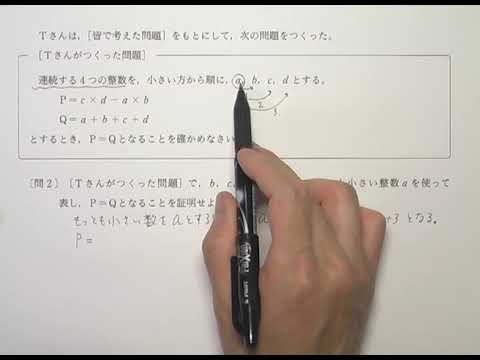 Tさんは,[皆で考えた問題]をもとにして,次の問題をつくった。
[Tさんがつくった問題]
連続する4つの整数を,小さい方から順に,a,b,c,dとする。
P=c×d-a×b
2
Q=a+b+c+d
3
とするとき,P=Qとなることを確かめなさい
[問2] [Tさんがつくった問題]で,b,c, も小さい整数aを使って
表し,P=Qとなることを証明せよ
もっとも小さい数をaとする a +3となる。
P=